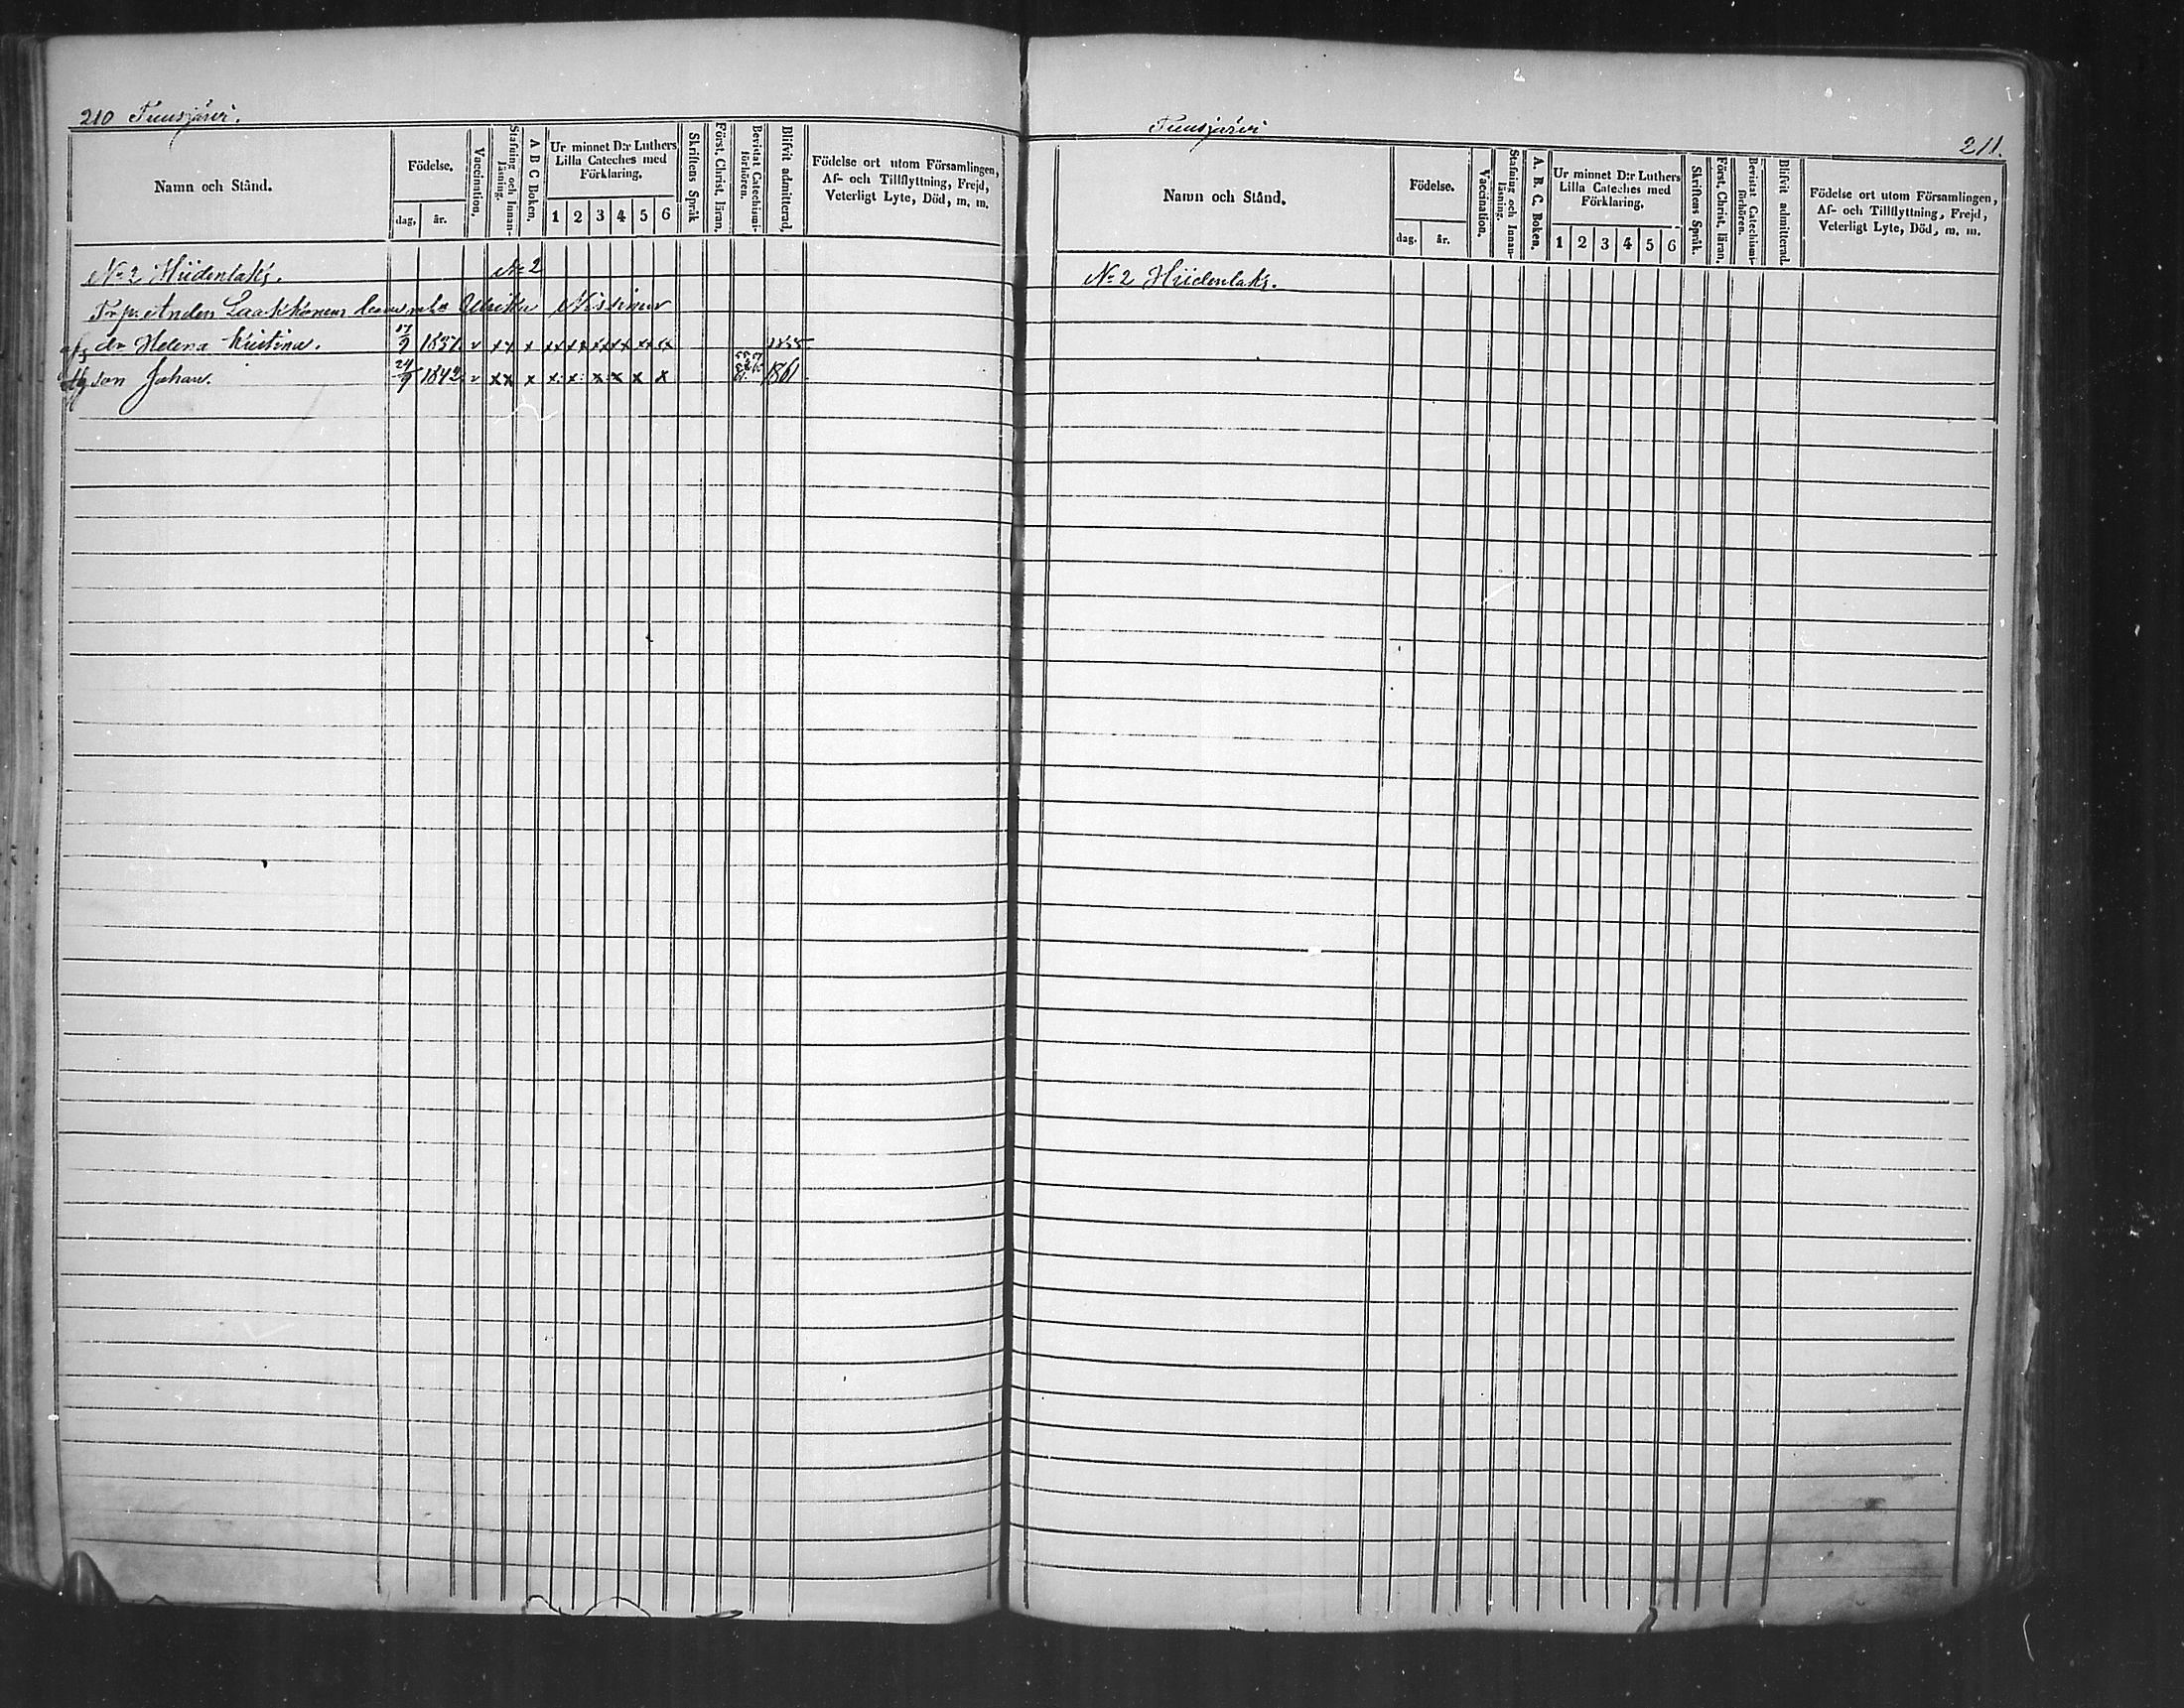 210 Tuusjärvi.
Namn och Stånd.
Födelse.
dag. år.
Vaccination.
Stafning och Innan-läsning.
A B C Boken.
Ur minnet D:r Luthers Lilla Cateches med Förklaring.
1 2 3 4 5 6
Skriftens Språk
Först. Christ. läran.
Bevistat Catechismi-förhören.
Blifvit admitterad.
Födelse ort utom Församlingen, Af- och Tillflyttning, Frejd, Veterligt Lyte, Död, m. m.
No 2 Hiidenlaks. No 2
Anders Laakkonens Ulrika Nissinen
dr Helena Kristina. 9 1837 v xx x xx xx xx xx xx xx 1855
son Johan. 24/9 1842 v xx x x x x x x x 1861
Tuusjärvi
211.
Namn och Stånd.
Födelse.
dag. år.
Vaccination.
Stafning och Innan-läsning.
A. B. C. Boken.
Ur minnet D:r Luthers Lilla Cateches med Förklaring.
1 2 3 4 5 6
Skriftens Språk.
Först. Christ. läran.
Bevistat Catechismi-förhören.
Blifvit admitterad.
Födelse ort utom Församlingen, Af- och Tillflyttning, Frejd, Veterligt Lyte, Död, m. m.
No 2 Hiidenlaks.